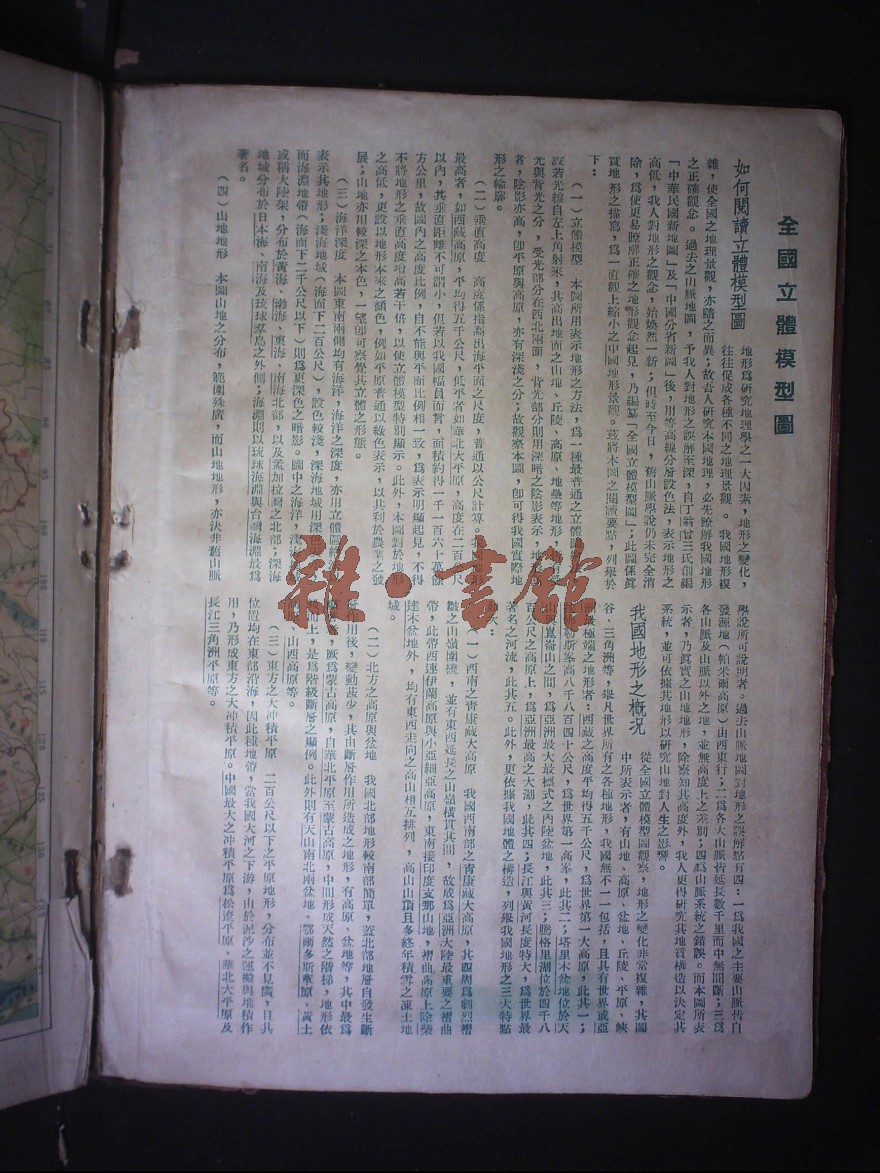 全國立體模型圖
如何閱讀立體模型圖
地形為研究地理學之一大因素，地形之變化，
往往使成各種不同之地理景觀。我國地形複
雜，使全國之地理景觀，亦隨之而異；故吾人研究本國地理，必先瞭解我國地形
之正確觀念。過去之山脈地圖，予我人對地形之誤解至深，自丁翁曾三氏創編
「中華民國新地圖」及「中國分省新圖」後，用等高線分層設色法，表示地形之
高低，我人對地形之觀念，始煥然一新；但時至今日，舊山脈學說仍未完全消
除，為使更易瞭解正確之地形觀念起見，乃編纂「全國立體模型圖」；此圖係真
實地形之描寫，為一直觀上縮小之中國地形景觀。茲將本圖之閱讀要點，列舉於
下：
（一）立體模型　本圖所用表示地形之方法，為一種最普通之立體
設若光線自左上角射來，其高出地面之山地、丘陵、高原、地壘等地形，
光與背光之分，受光部分在西北兩面，背光部分則用深暗之陰影表示，地
者，陰影亦高，卽平原與高原，亦有深淺之分；故觀察本圖，卽可得我國實際地
形之輪廓。
（二）垂直高度　高度係指高出海平面之尺度，普通以公尺計算。我
最高者，如西藏高原，平均得五千公尺，低平者如華北大平原，高度在二百公尺
以內，其垂直距離不可謂小，但若以我國幅員而言，面積約得一千一百六十萬
方公里，故圖內之高度比例，自不能與平面比例相一致，為表示明顯起見，不得
不將地形之垂直高度增高若干倍，以使立體模型特別顯示。此外，本圖對於地形
之高低，更設以地形本來之顏色，例如平原普通以綠色表示，以其利於農業之發
展；山地亦用較深之本色，一望卽可察覺其立體之形態。
（三）海洋深度　本圖東南兩側均有海洋，海洋之深度，亦用立體圖
表示其地形；淺海地域（海面下二百公尺），設色較淺，深海地域用深色
而海淵地帶（海面下二千公尺以下）則為更深色之暗影。圖中之海洋，淺
或稱大陸架，分布於黃海、渤海、東海、南海北部，以及孟加拉灣之北部；深海
地域分布於日本海、南海及琉球羣島之外側；海淵則以琉球海淵與台灣海淵最為
著名。
（四）山地地形　本圖山地之分布，範圍殊廣，而山地地形，亦決非舊山脈
學說所可說明者。過去山脈地圖對地形之誤解點有四：一為我國之主要山脈皆自
發源地（帕米爾高原）由西東行；二為各大山脈皆延長數千里而中無間斷；三為
各山脈及山脈以外之地，並無高度上之差別；四為山脈系統之錯誤。而本圖所表
示者，乃真實之山地地形，除察知其高度外，我人更得研究其地質構造以決定其
系統，並可依據其地形以研究山地對人生之影響。
我國地形之概況
從全國立體模型圖觀察，地形之變化非常複雜，其圖
中所表示者，有山地、高原、盆地、丘陵、平原、峽
谷、三角洲等，舉凡世界所有之各種地形，我國無不一一包括，且具有世界或亞
洲最極端之地形者：西藏之高度平均得五千公尺，為世界第一大高原，此其一；
勒斯峯高八千八百四十公尺，為世界第一高峯，此其二；塔里木盆地位於天
山崑崙山之間，為亞洲最大最標式之內陸盆地，此其三；騰格里湖位於四千八
百公尺之高原上，為亞洲最高之大湖，此其四；長江與黃河長度特大，為世界最
著名之河流，此其五。此外，更依據我國地體之構造，列舉我國地形之三大特點
如次：
（一）西南之青康藏大高原　我國西南部之青康藏大高原，其四周為劇烈褶
皺之山嶺圍繞，並有東西延長之山嶺橫貫其間，故成為亞洲大陸最重要之褶曲
帶，此帶西連伊蘭高原與小亞細亞高原，東南接印度支那山地，褶曲高原上除柴
達木盆地外，均有東西走向之高山相互排列，高山山頂且多終年積雪之凍土地
域。
（二）北方之高原與盆地　我國北部地形較南部簡單，蓋北部地層自發生斷
層作用後，變動甚少，其由斷層作用所造成之地形，有高原、盆地等，其中最為
厥為蒙古高原，自華北平原至蒙古高原，中間形成天然之階梯，地形依
級而上，是為階級斷層之顯例。此外則有天山南北兩盆地、鄂爾多斯草原、黃土
山西高原等。
（三）東方之大沖積平原　二百公尺以下之平原地形，分布並不見廣，且其
位置均在東部沿海，因此種地帶，當我國大河之下游，由於泥沙之運搬與堆積作
用，乃形成東方之大沖積平原。中國最大之沖積平原為松遼平原、華北大平原及
長江三角洲平原等。
雜·書館